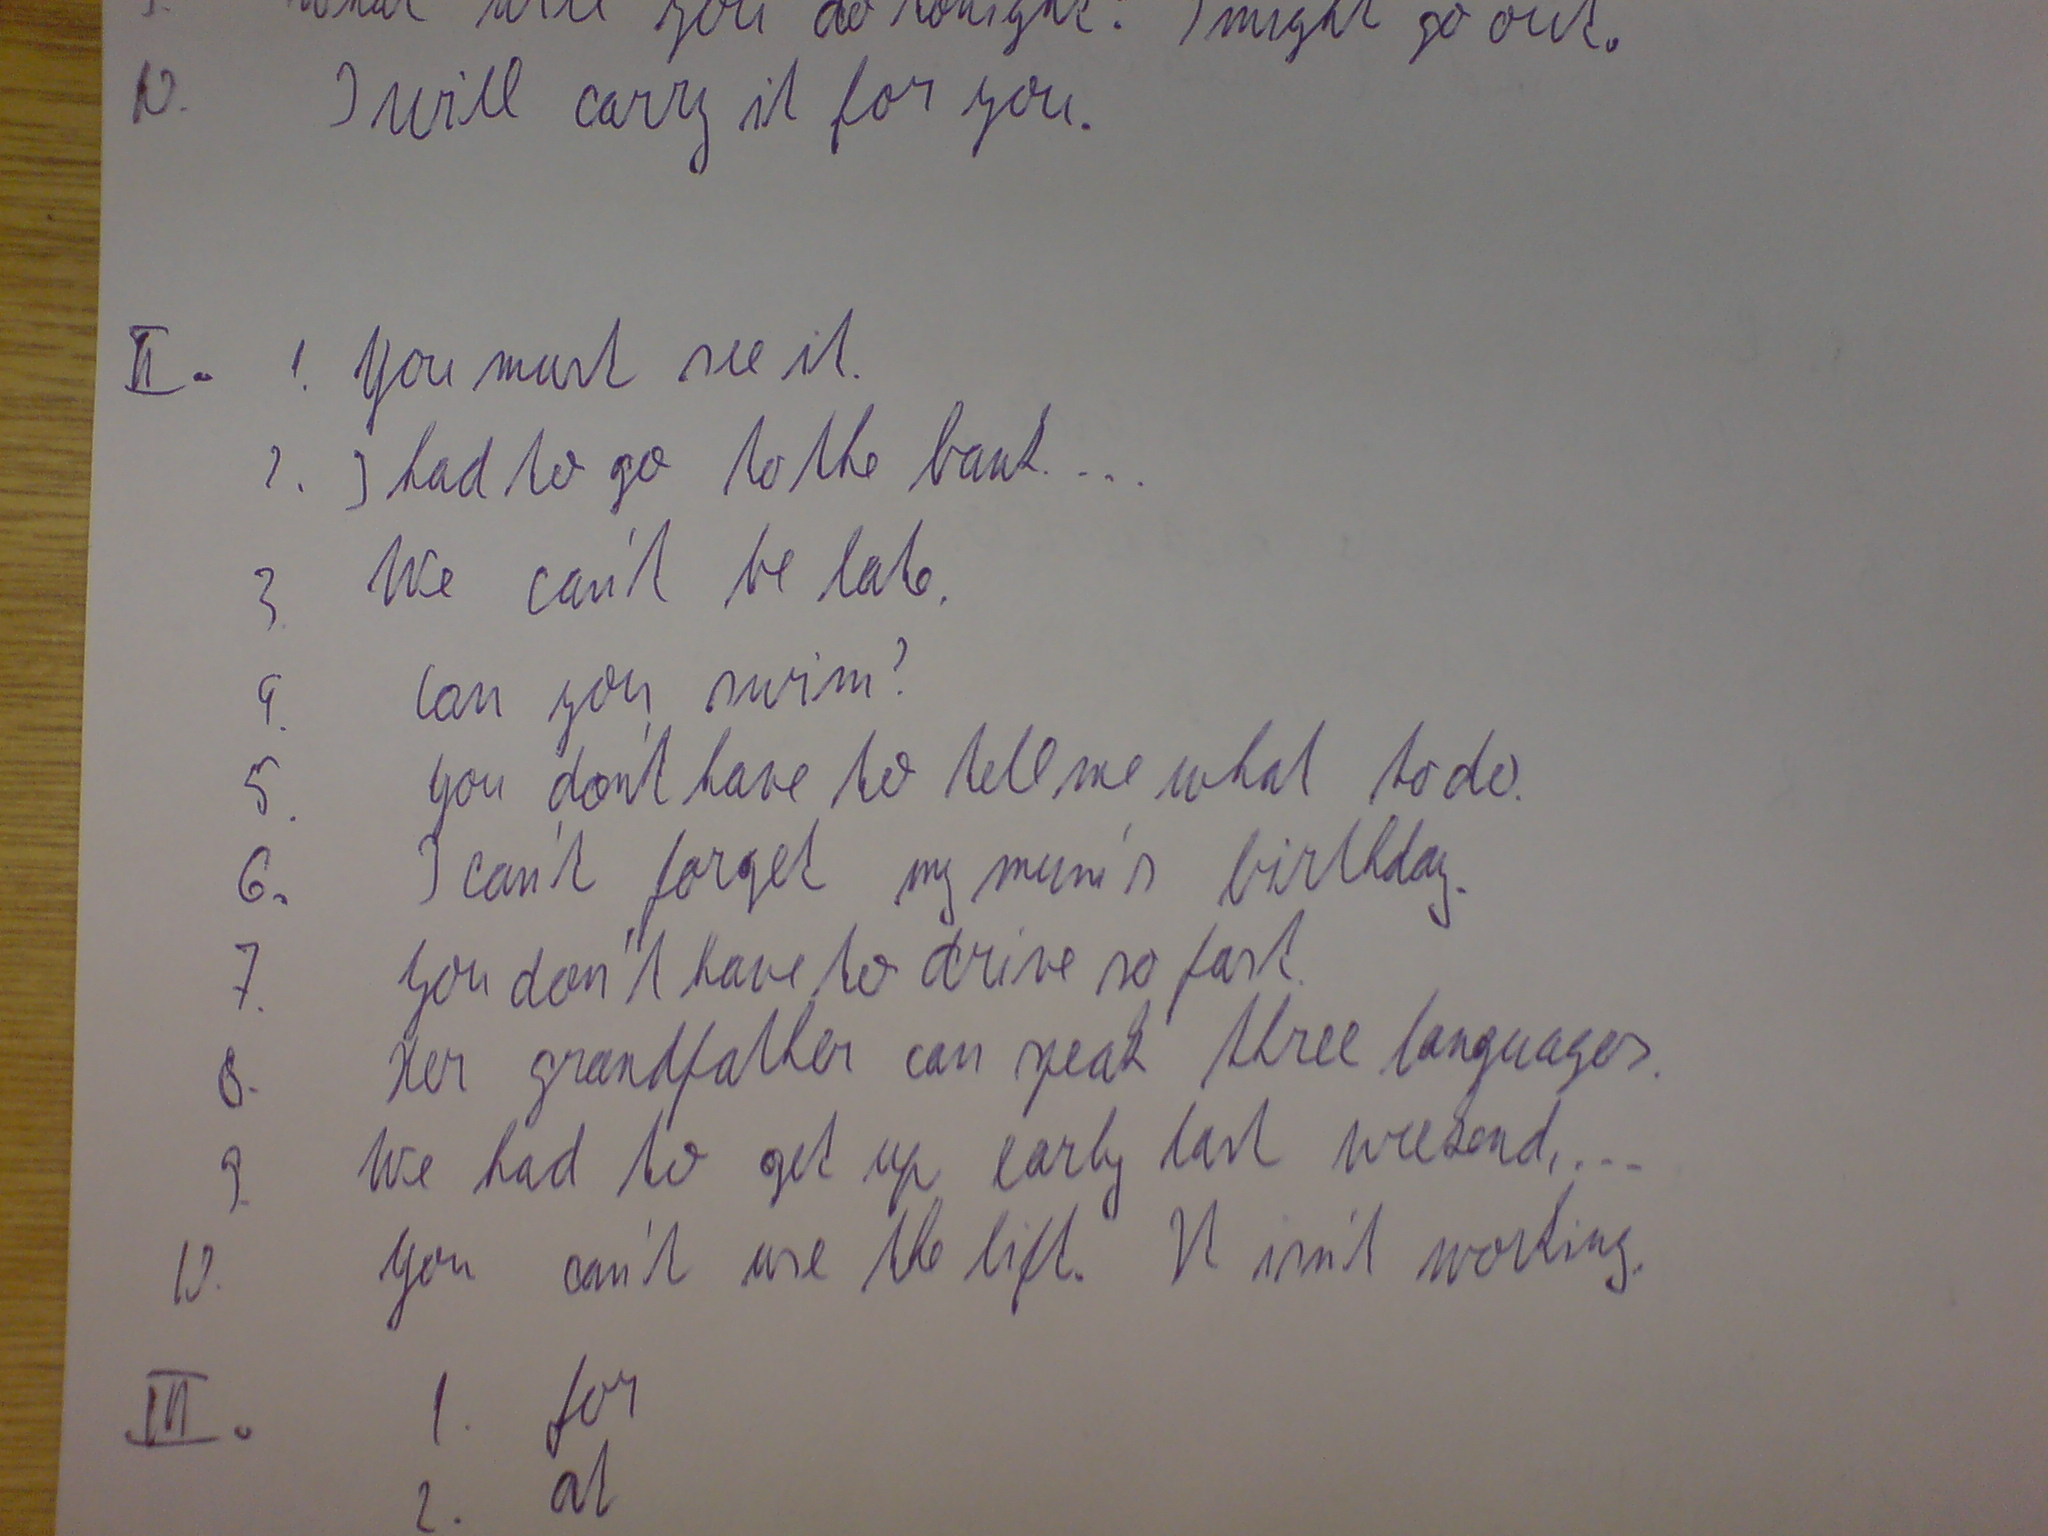 9. What will you do tonight? I might go out.
10. I will carry it for you.
II. 1. You must see it.
2. I had to go to the bank....
3. We can't be late.
4. Can you swim?
5. you don't have to tell me what to do.
6. I can't forget my mum's birthday.
7. you don't have to drive so fast.
8. Her grandfather can speak three languages.
9. We had to get up early last weekend,....
10. you can't use the lift. It isn't working.
III. 1. for
2. at